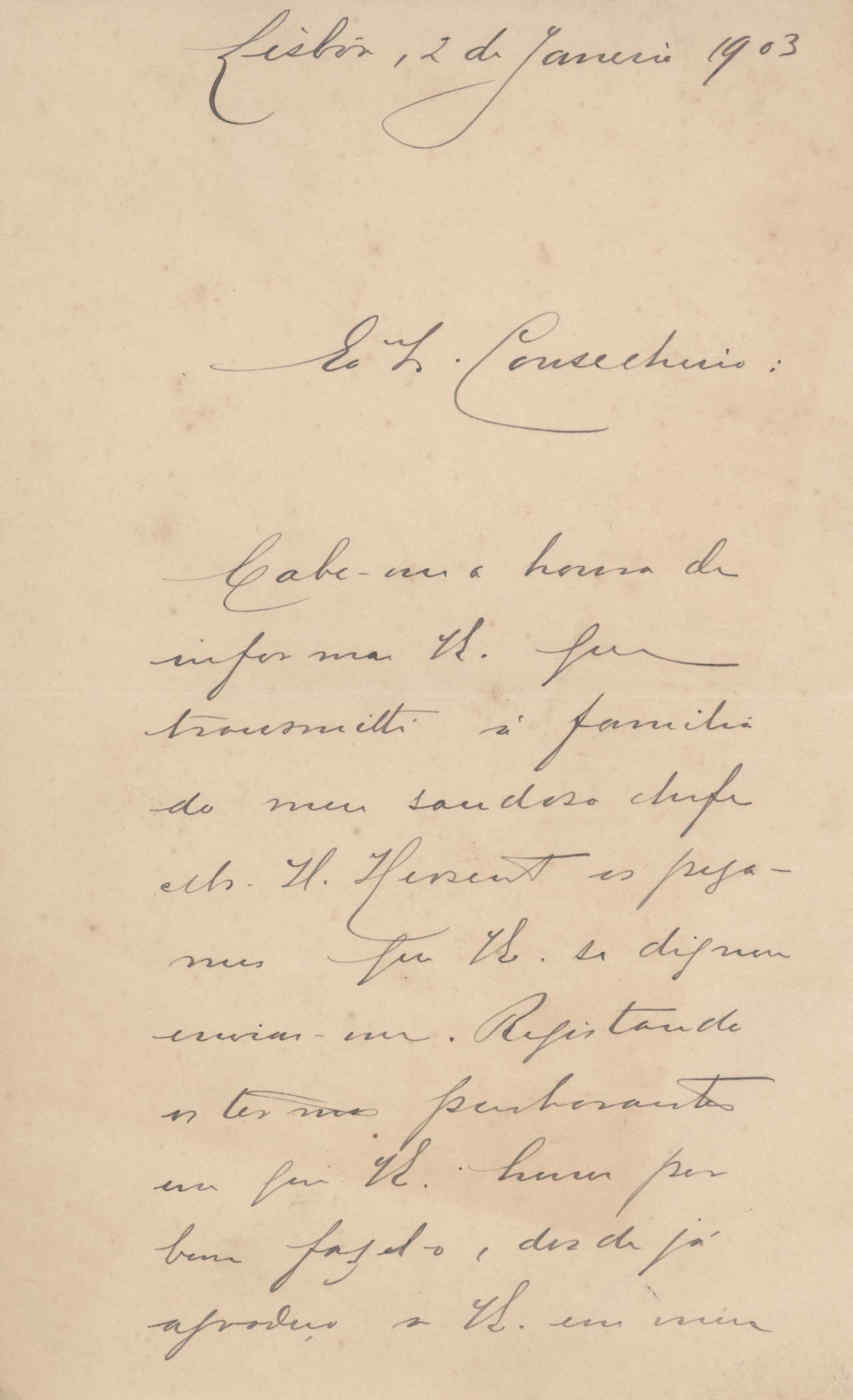 Lisbôa, 2 de Janeiro 1903
Conselheiro:
Cabe-me a honra de
informar V.E. que
transmitti á familia
do meu saudoso chefe
Mr. H. Hersent os peza-
mes que V.E. se dignou
enviar-me. Registando
os termos penhorantes
em que V.E. houve por
bem fazel-o, desde já
agradeço a V.E. em meu